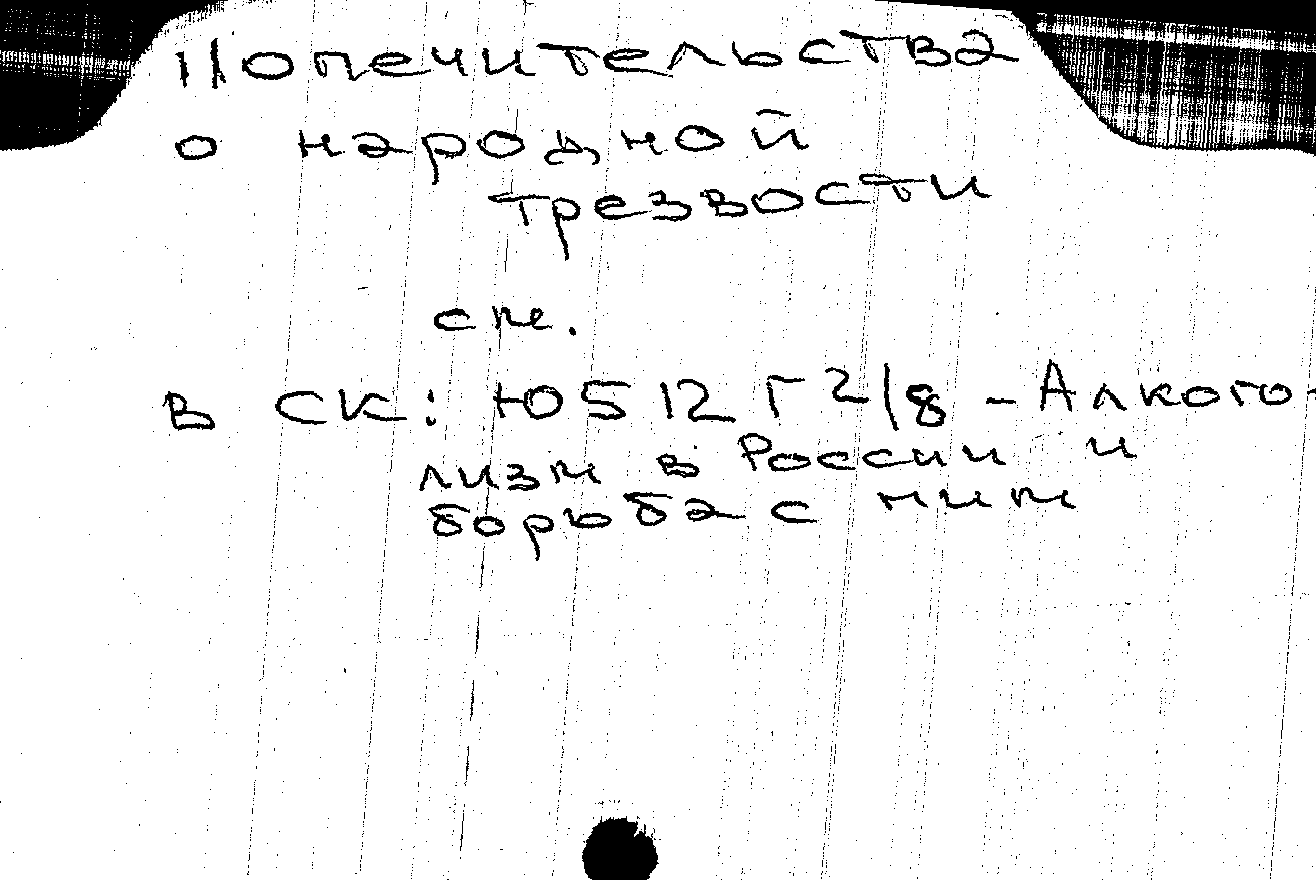 Попечительства
о народной
трезвости
см.
в СК: Ю512 Г2/8 - Алкого-
лизм в России и
борьба с ним